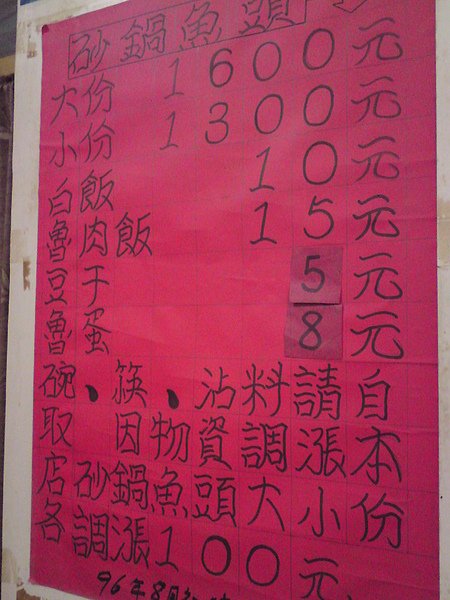 砂鍋魚頭
大份 1600元
小份 1300元
白飯 10元
魯肉飯 15元
豆干 5元
魯蛋 8元
碗、筷、沾料請自
取 因物資調漲本
店砂鍋魚頭大小份
各調漲100元
96年8月